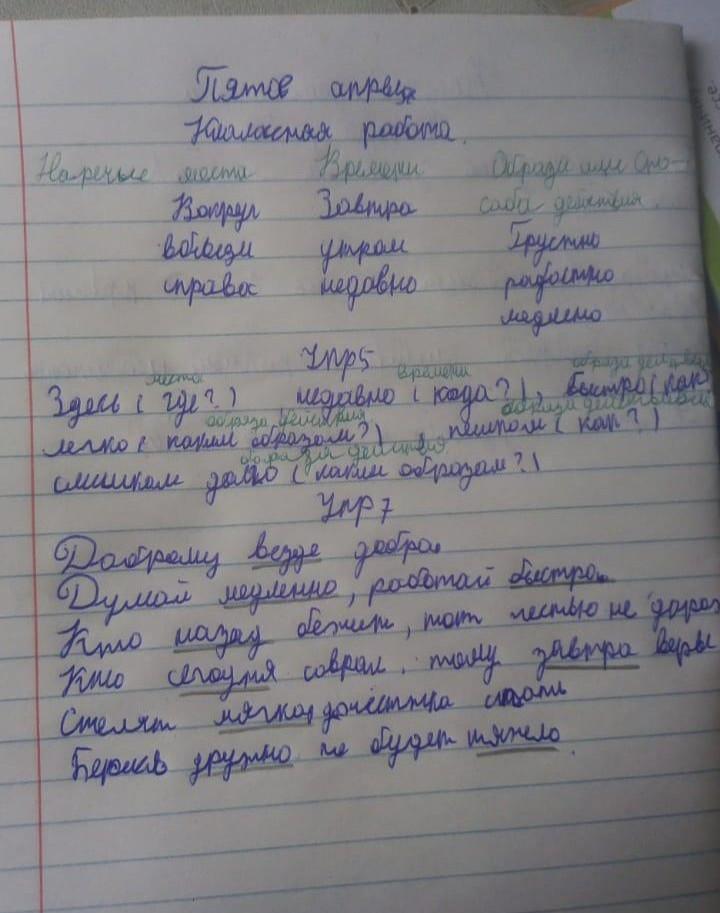 Пятое апреля
Классная работа.
Наречие места Времени Образа или спо-
Вокруг Завтра соба действия.
вобщем утром Грустно
справа недавно радостно
медлено
Упр5
места времени образа действия
Здесь ( где?) недавно ( кода?), быстро( как
образа действия образа действия
легко ( каким образом?) , пешком ( как?)
образа действия
слишком долго ( каким образом?)
Упр7
Доброму везде добро.
Думай медленно, работай быстро.
Кто назад бежит, тот честью не дорож
Кто сегодня соврал. тому завтра
Стелят мягко, да жестко спать
Берись дружно не будет тяжело.